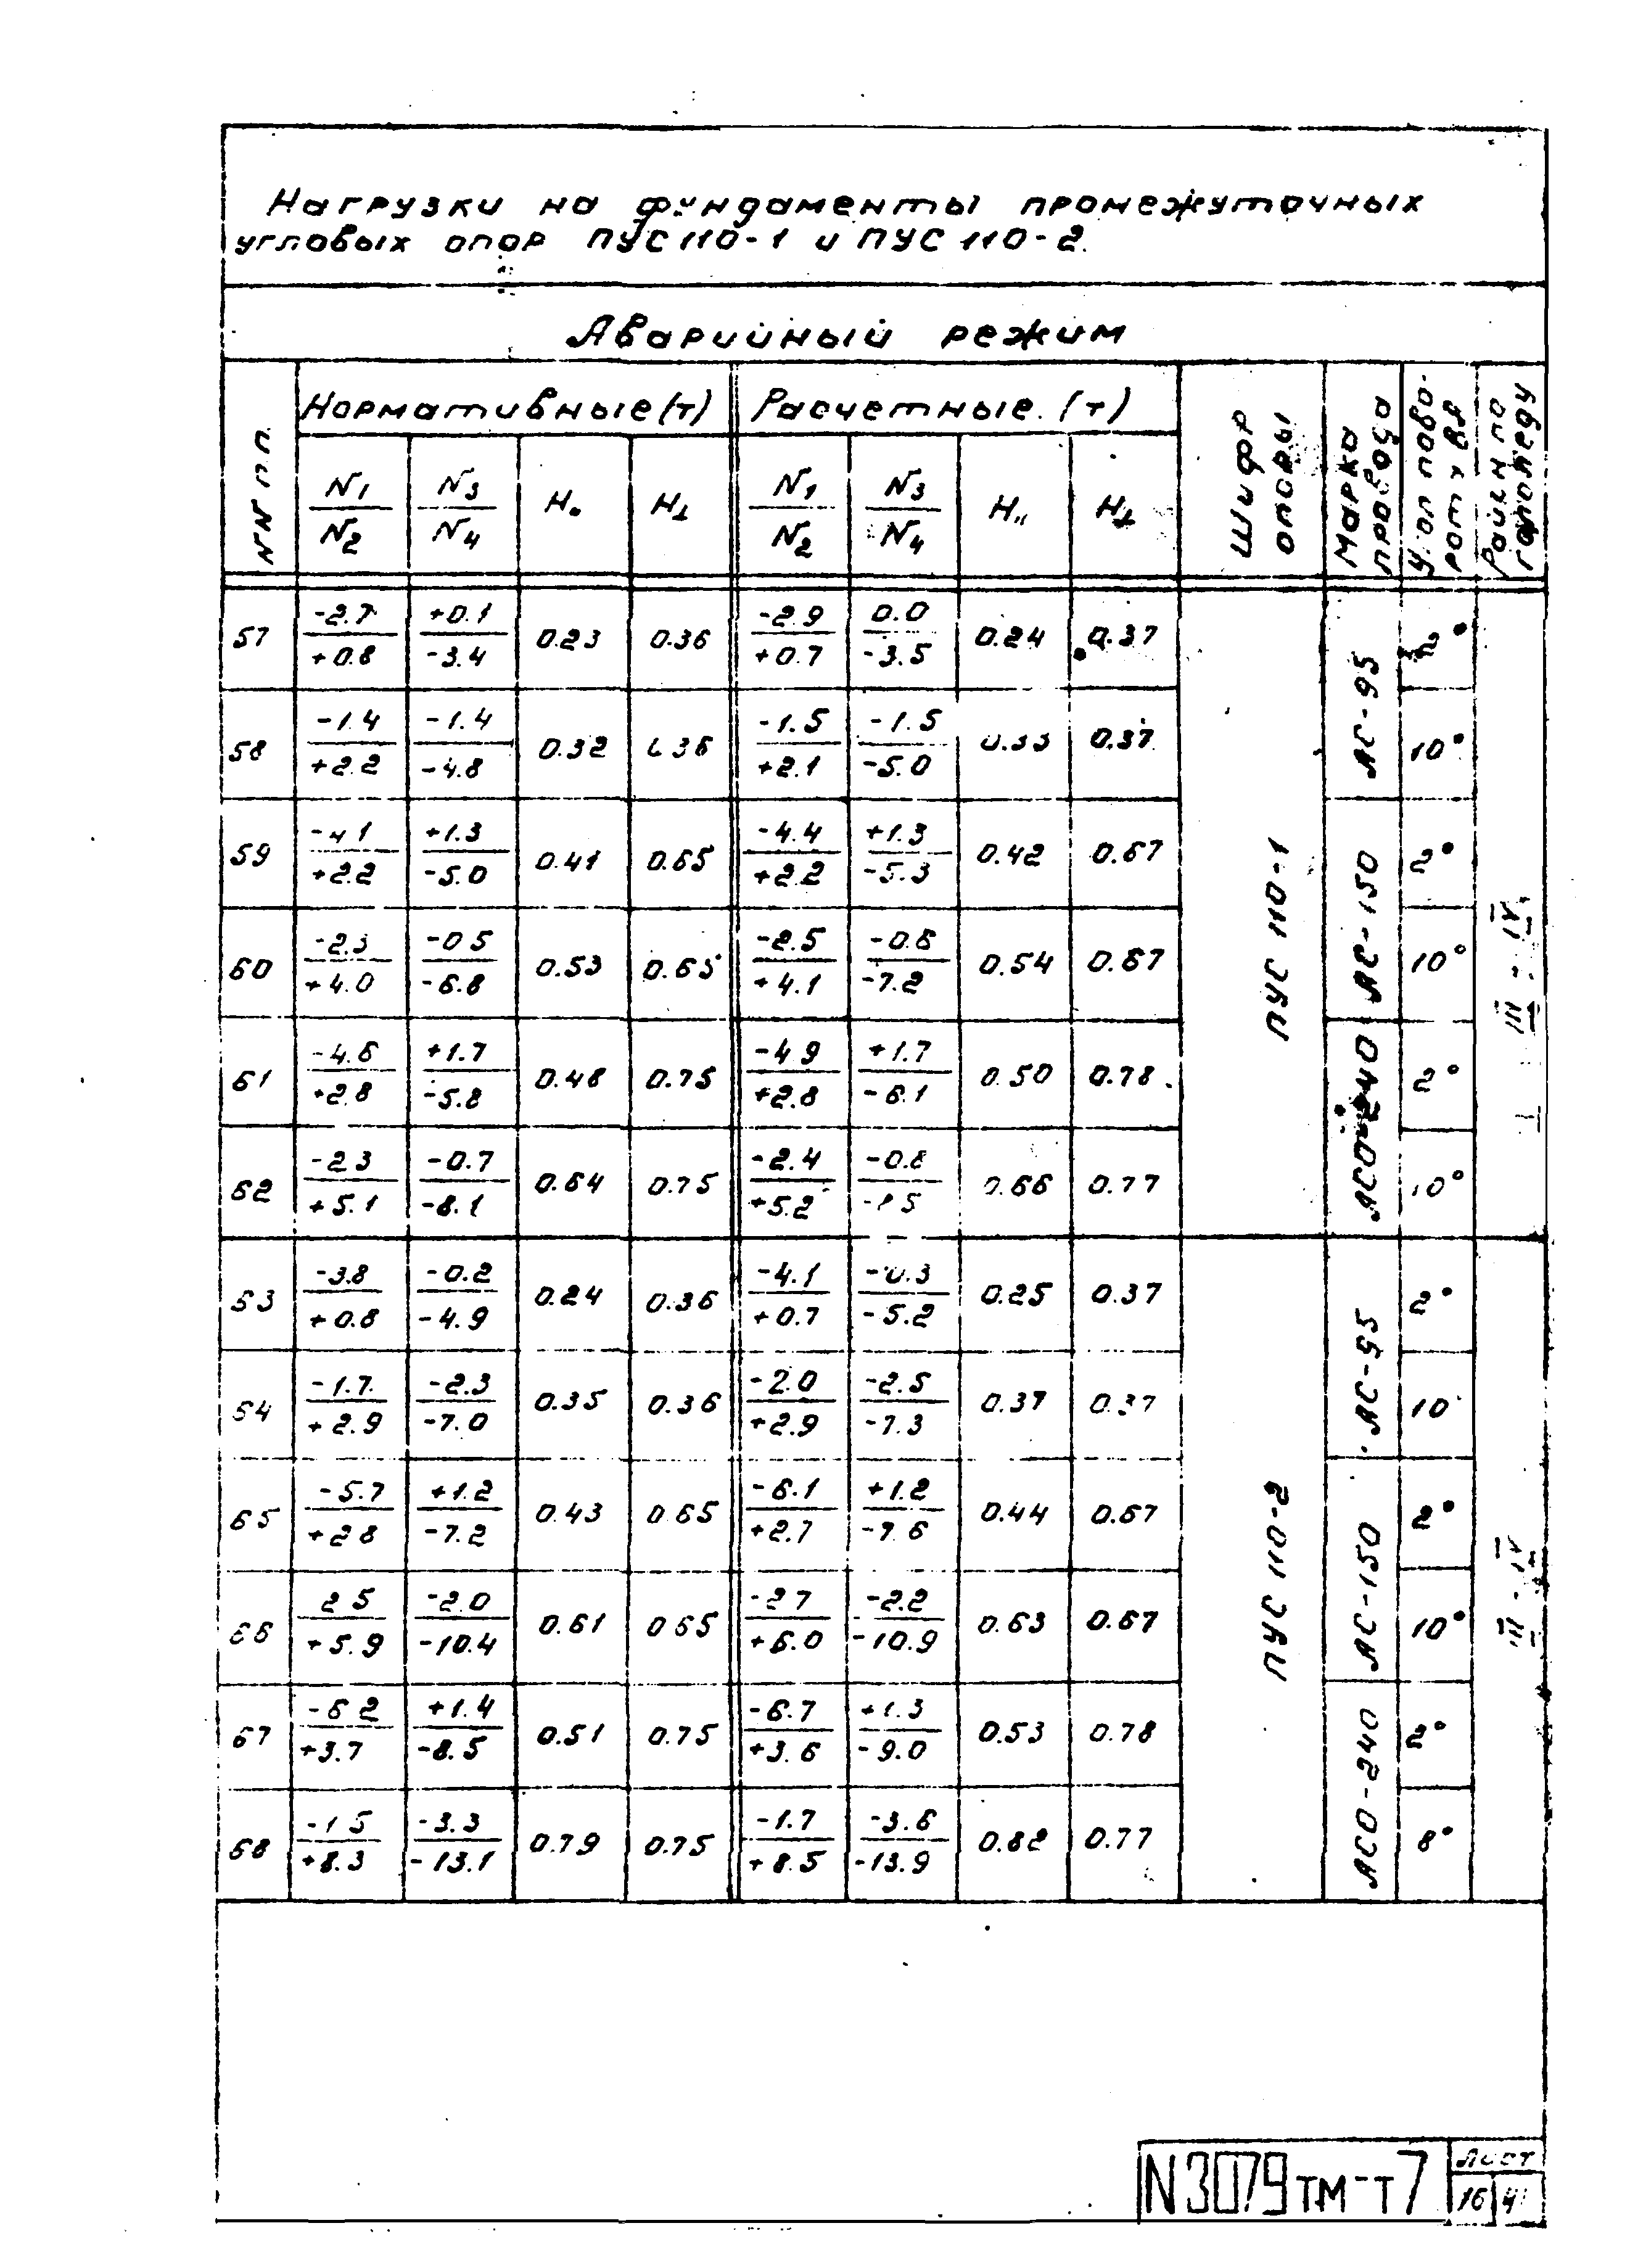 Нагрузки на фундаменты промежуточных
угловых опор ПУС 110-1 и ПУС 110-2.
Аварийный режим
NN п.п. Нормативные (т) Расчетные. (т) Шифр опоры Марка провода Угол поворота ВЛ Район по гололеду
N1/N2 N3/N4 H" H⊥ N1/N2 N3/N4 H" H⊥
57 -2.7/+0.8 +0.1/-3.4 0.23 0.36 -2.9/+0.7 0.0/-3.5 0.24 0.37 ПУС 110-1 АС-95 2° III-IV
58 -1.4/+2.2 -1.4/-4.8 0.32 0.36 -1.5/+2.1 -1.5/-5.0 0.33 0.37 10°
59 -4.1/+2.2 +1.3/-5.0 0.41 0.65 -4.4/+2.2 +1.3/-5.3 0.42 0.67 АС-150 2°
60 -2.3/+4.0 -0.5/-6.8 0.53 0.65 -2.5/+4.1 -0.6/-7.2 0.54 0.67 10°
61 -4.6/+2.8 +1.7/-5.8 0.48 0.75 -4.9/+2.8 +1.7/-6.1 0.50 0.78 АСО-240 2°
62 -2.3/+5.1 -0.7/-8.1 0.64 0.75 -2.4/+5.2 -0.8/ 0.66 0.77 10°
63 -3.8/+0.8 -0.2/-4.9 0.24 0.36 -4.1/+0.7 -0.3/-5.2 0.25 0.37 ПУС 110-2 АС-95 2° III-IV
64 -1.7/+2.9 -2.3/-7.0 0.35 0.36 -2.0/+2.9 -2.5/-7.3 0.37 0.37 10°
65 -5.7/+2.8 +1.2/-7.2 0.43 0.65 -6.1/+2.7 +1.2/-7.6 0.44 0.67 АС-150 2°
66 2.5/+5.9 -2.0/-10.4 0.61 0.65 -2.7/+6.0 -2.2/-10.9 0.63 0.67 10°
67 -6.2/+3.7 +1.4/-8.5 0.51 0.75 -6.7/+3.6 +1.3/-9.0 0.53 0.78 АСО-240 2°
68 -1.5/+8.3 -3.3/-13.1 0.79 0.75 -1.7/+8.5 -3.6/-13.9 0.82 0.77 8°
N3079тм-т7 Лист
16